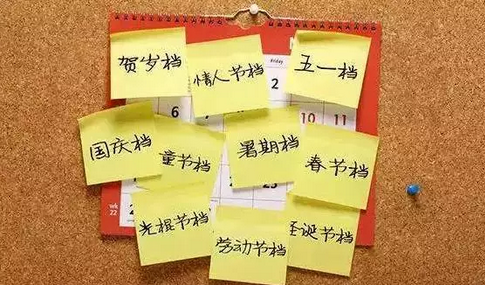 贺岁档
情人节档
五一档
Friday
2
6
10
11
国庆档
童节档
暑期档
春节档
wk
22
光棍节档
劳动节档
圣诞节档